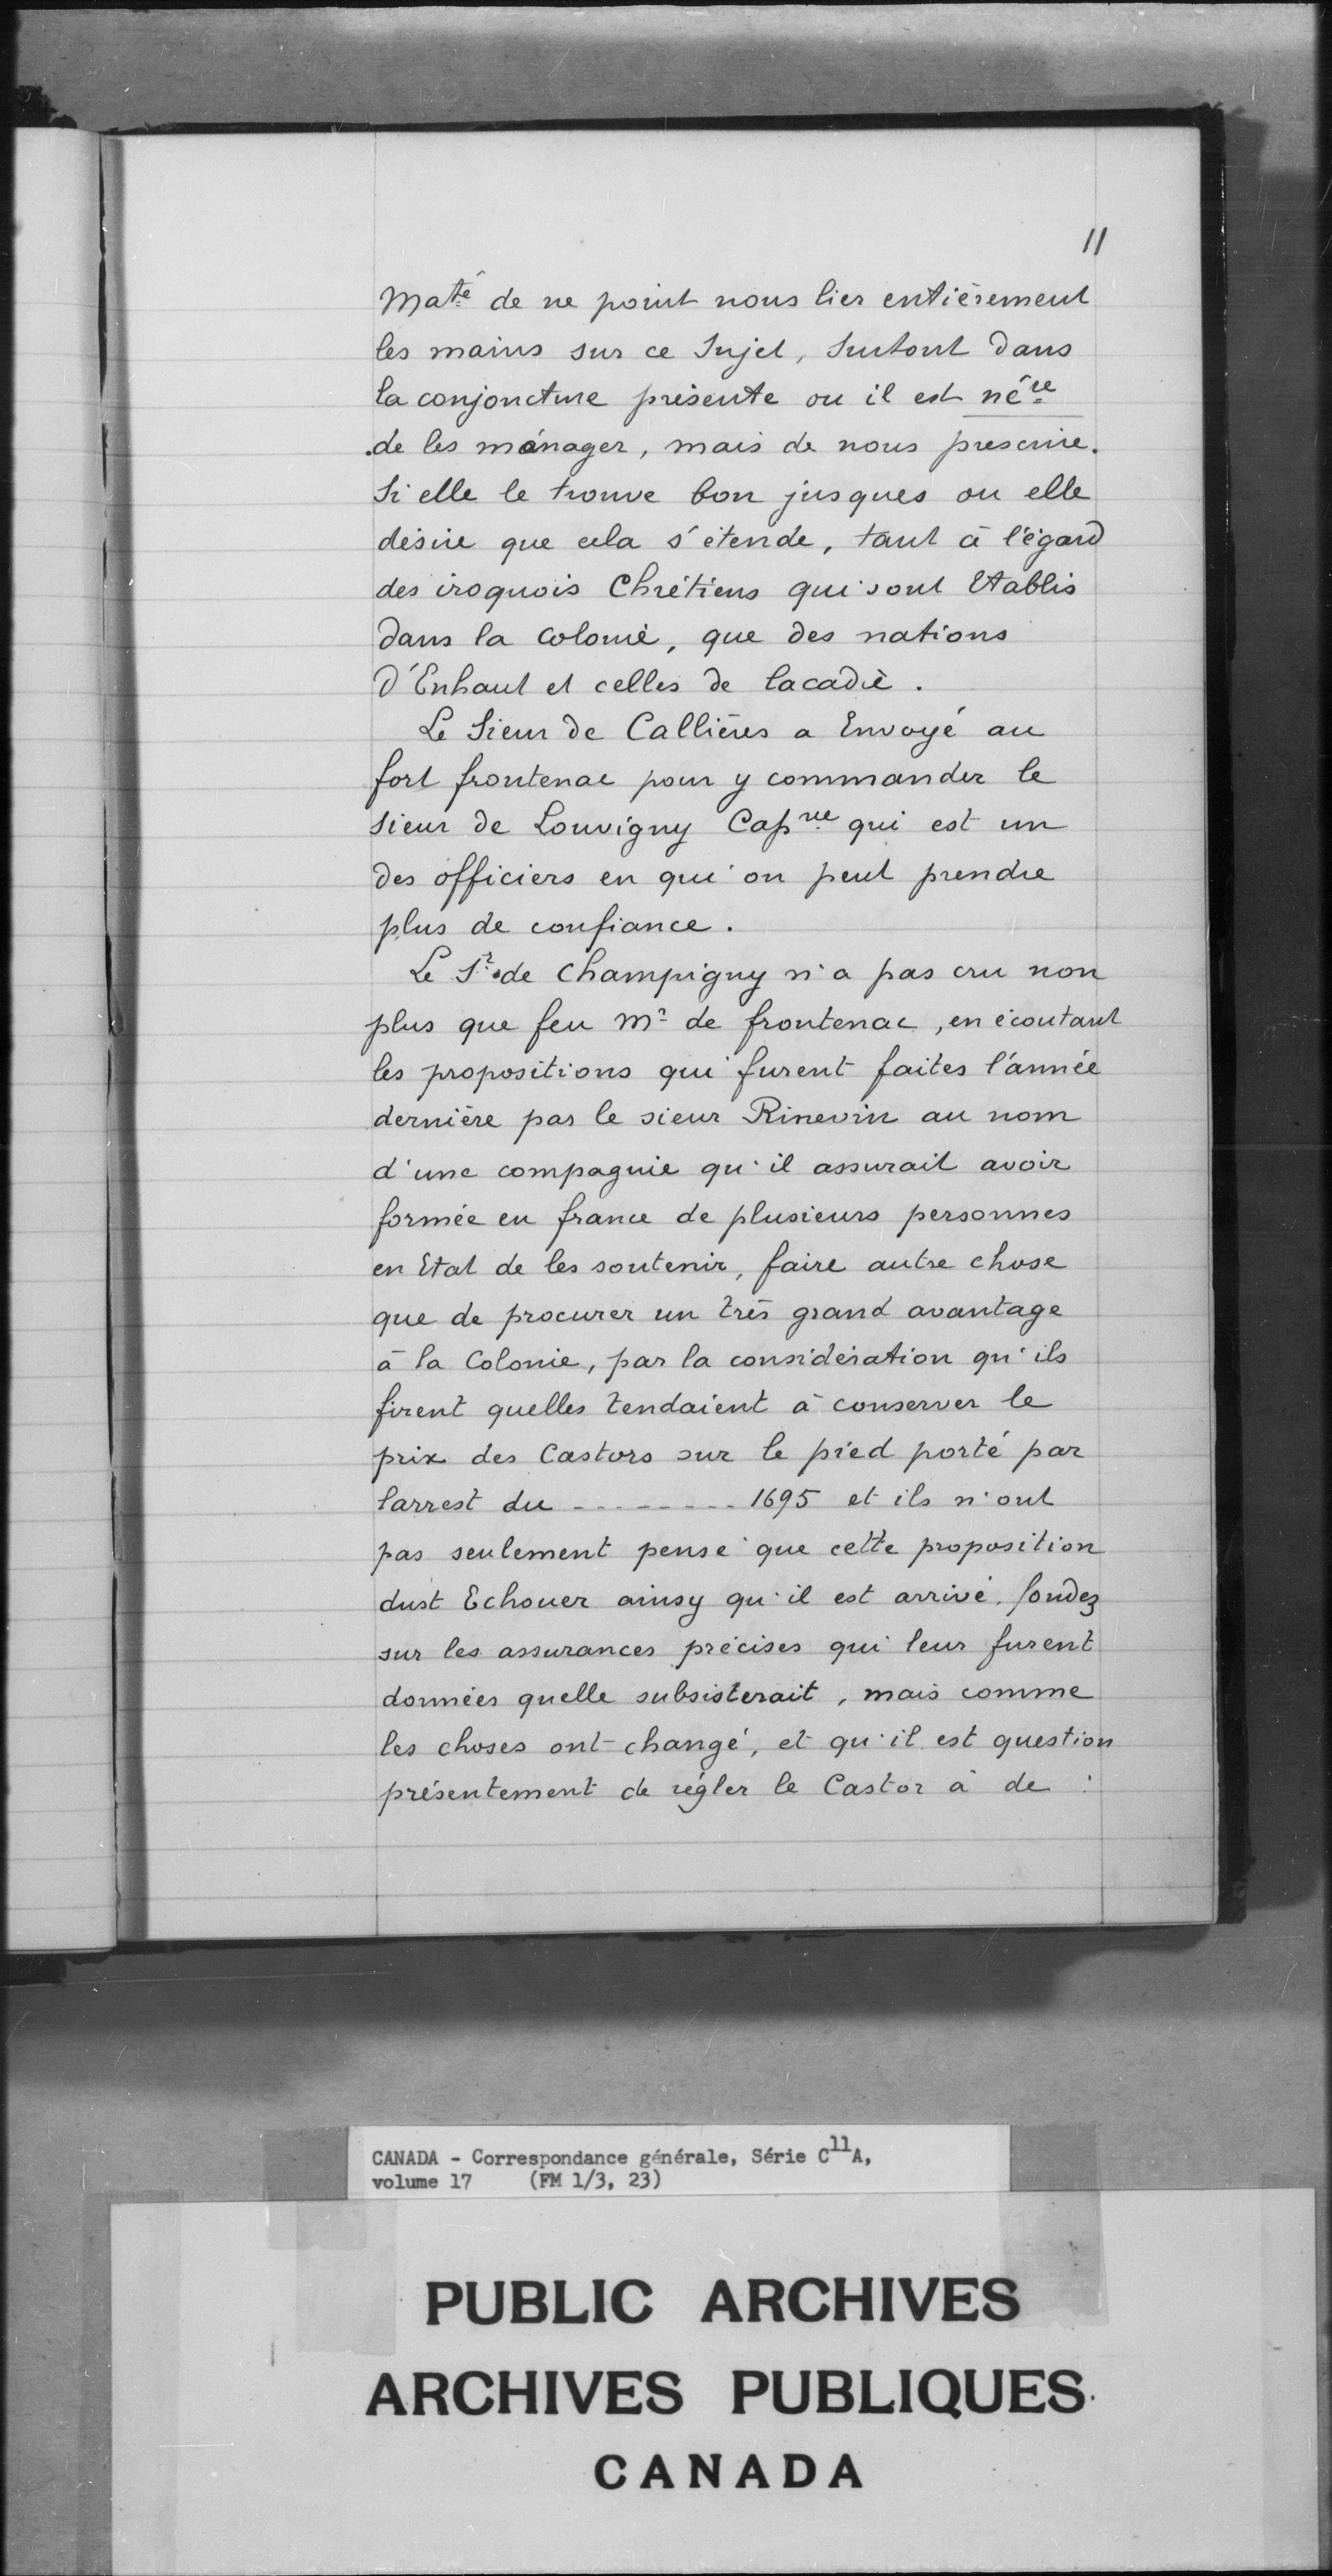 11
Maté de ne point nous lier entièrement
les mains sur ce Sujet, Surtout dans
la conjoncture présente ou il est nére
de les ménager, mais de nous prescrire.
Si elle le trouve bon jusques ou elle
désire que cela s'étende, tant à l'égard
des iroquois Chrétiens qui sont Etablis
dans la Colonie, que des nations
d'Enhaut et celles de lacadie.
Le Sieur de Callières a Envoyé au
fort frontenac pour y commander le
Sieur de Louvigny Capne qui est un
des officiers en qui on peut prendre
plus de confiance.
Le Sr de Champigny n'a pas cru non
plus que feu Mr de frontenac, en écoutant
les propositions qui furent faites l'année
dernière par le sieur Rinevin au nom
d'une compagnie qu'il assurait avoir
formée en france de plusieurs personnes
en Etat de les soutenir, faire autre chose
que de procurer un très grand avantage
à la Colonie, par la considération qu'ils
firent quelles tendaient à conserver le
prix des Castors sur le pied porté par
larrest du --------- 1695 et ils n'ont
pas seulement pensé que cette proposition
dust Echouer ainsy qu'il est arrivé, fondez
sur les assurances précises qui leur furent
données quelle subsisterait, mais comme
les choses ont changé, et qu'il est question
présentement de régler le Castor à de :
CANADA - Correspondance générale, Série C11A,
volume 17 (FM 1/3, 23)
PUBLIC ARCHIVES
ARCHIVES PUBLIQUES
CANADA